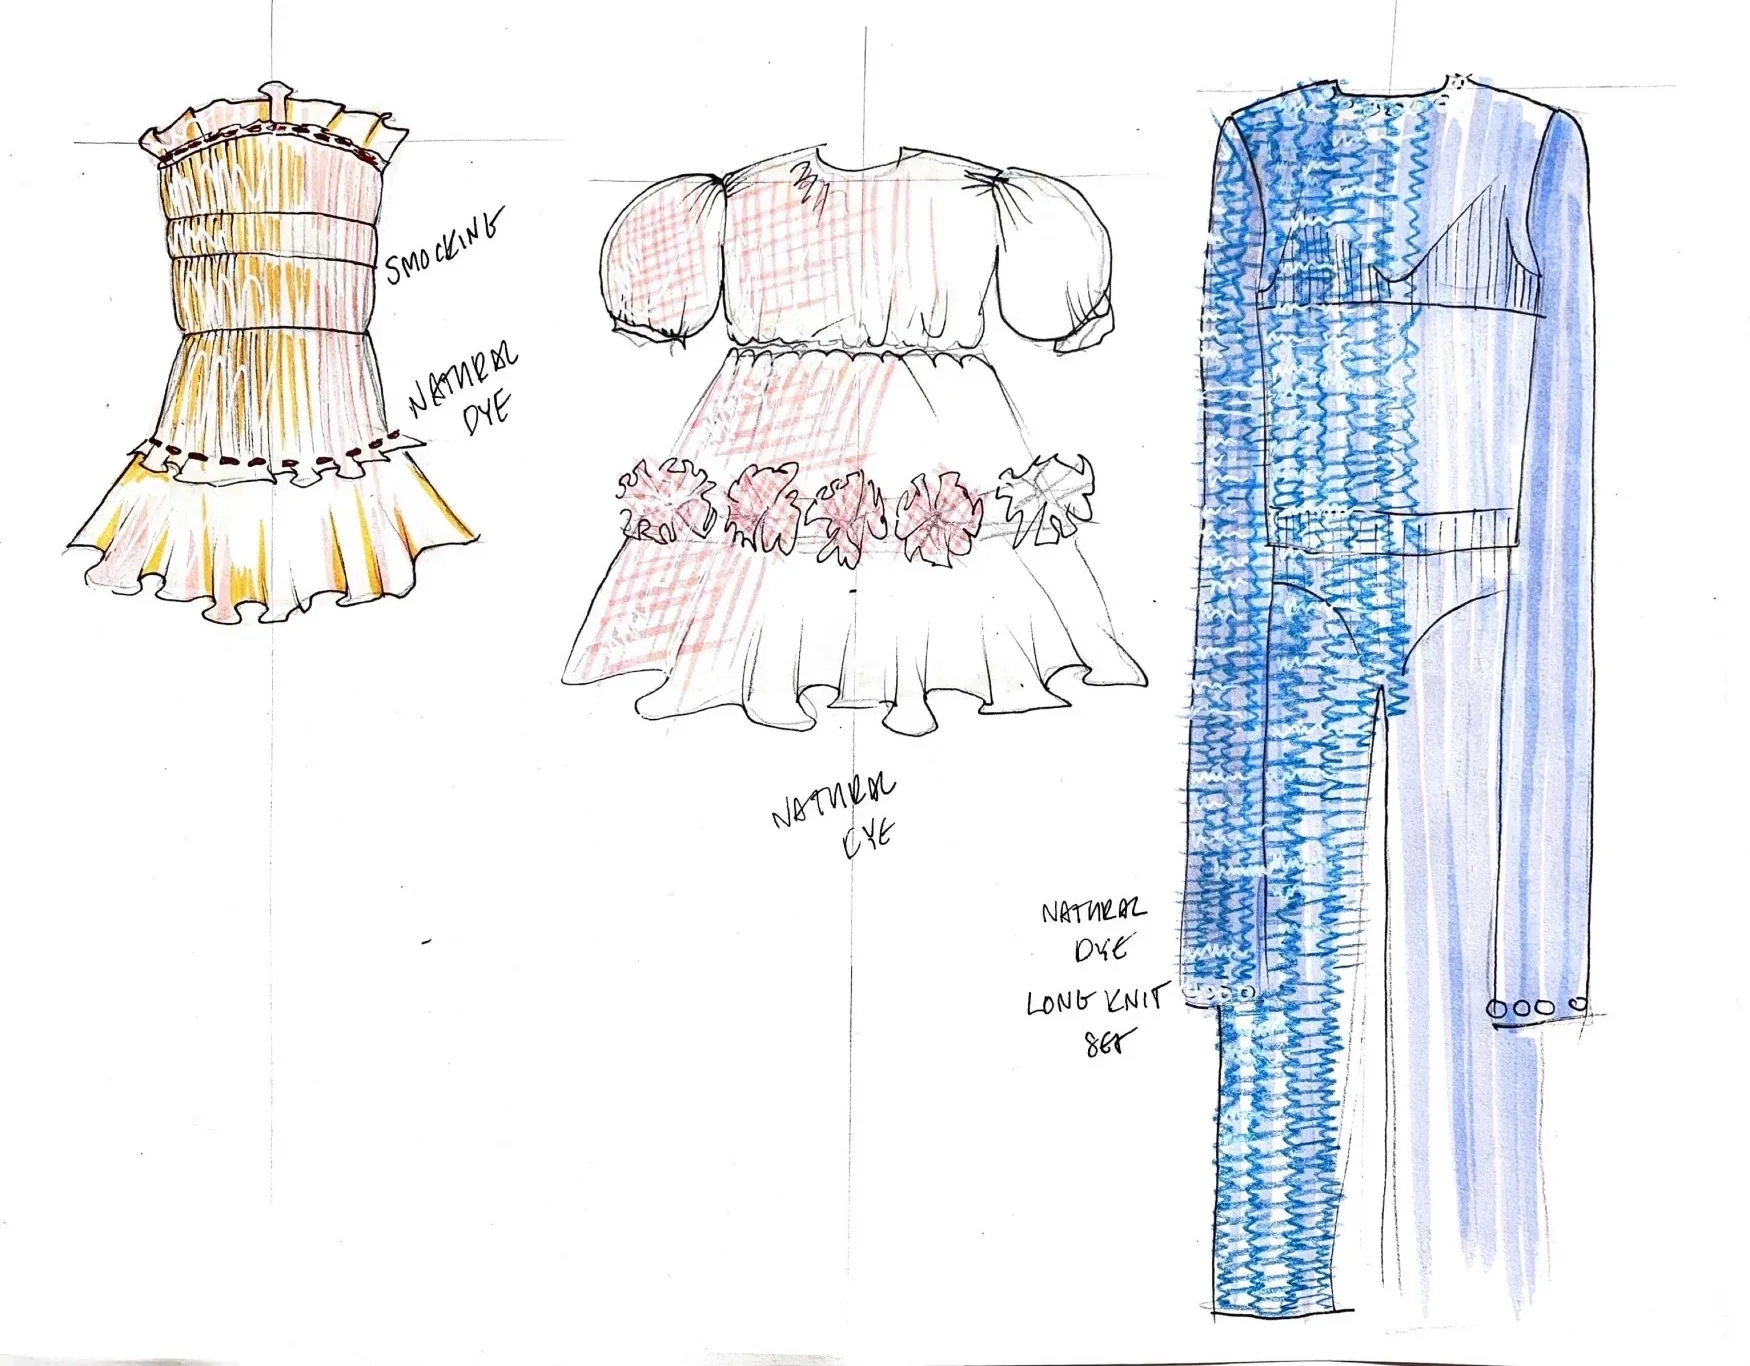 SMOCKING
NATURAL
DYE
NATURAL
DYE
NATURAL
DYE
LONG KNIT
SET